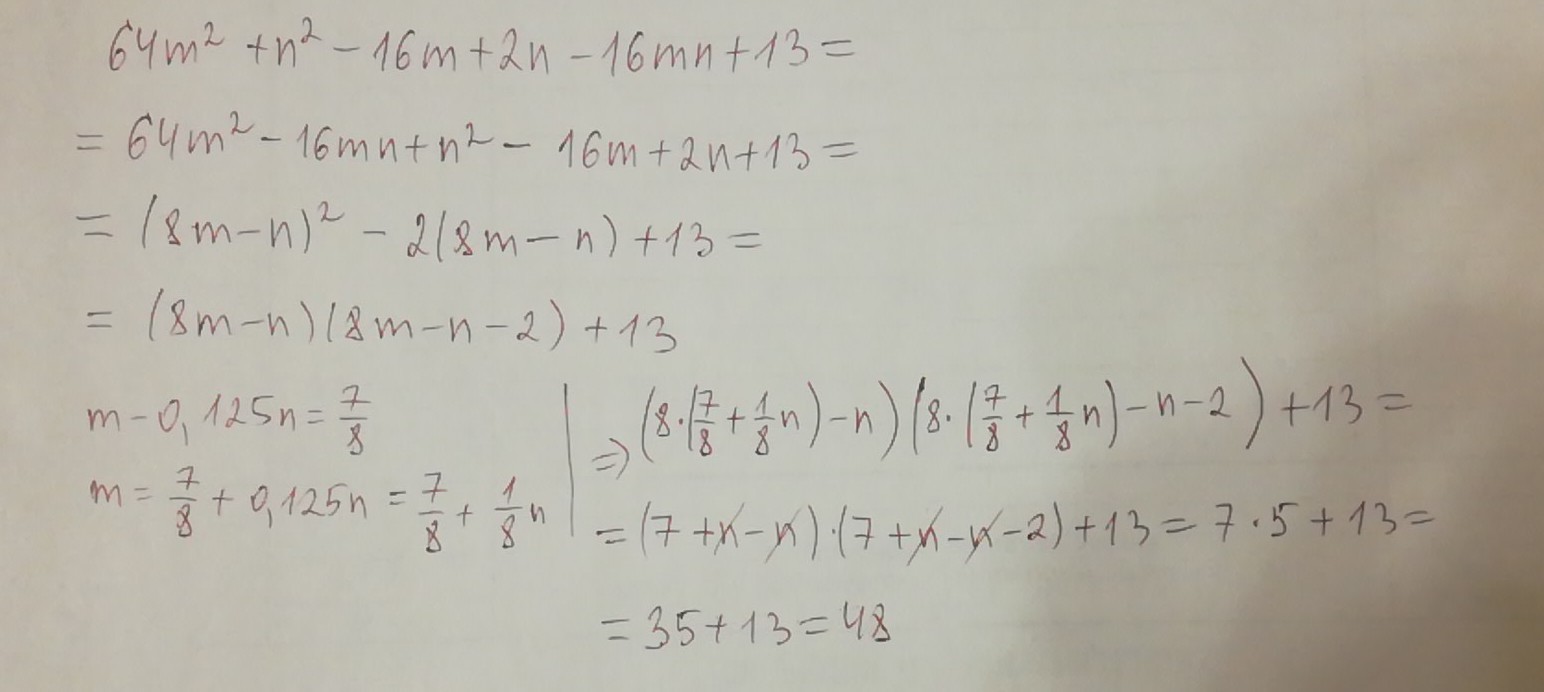 64m² + n² - 16m + 2n - 16mn + 13 =
= 64m² - 16mn + n² - 16m + 2n + 13 =
= (8m - n)² - 2(8m - n) + 13 =
= (8m - n)(8m - n - 2) + 13
m - 0,125n = 7/8
m = 7/8 + 0,125n = 7/8 + 1/8 n
⇒ (8·(7/8 + 1/8 n) - n)(8·(7/8 + 1/8 n) - n - 2) + 13 =
= (7 + n - n)·(7 + n - n - 2) + 13 = 7·5 + 13 =
= 35 + 13 = 48